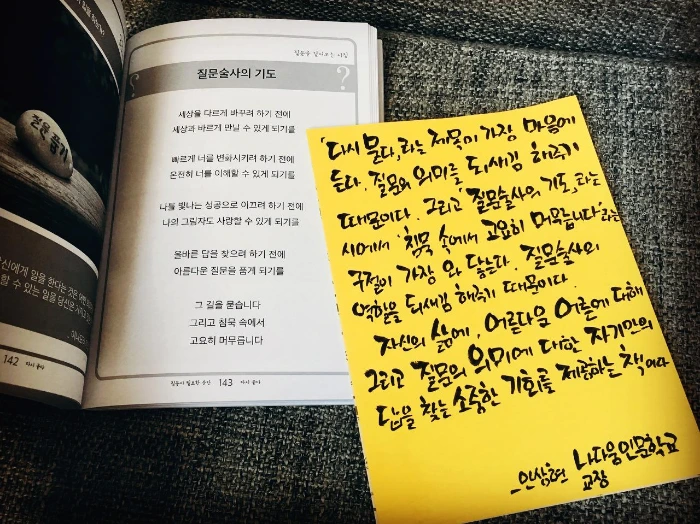 질문 품기
142 다시 묻다
질문술사의 기도
?
세상을 다르게 바꾸려 하기 전에
세상과 바르게 만날 수 있게 되기를
빠르게 너를 변화시키려 하기 전에
온전히 너를 이해할 수 있게 되기를
나를 빛나는 성공으로 이끄려 하기 전에
나의 그림자도 사랑할 수 있게 되기를
올바른 답을 찾으려 하기 전에
아름다운 질문을 품게 되기를
그 길을 묻습니다
그리고 침묵 속에서
고요히 머무릅니다
질문이 필요한 순간 143 다시 묻다
「다시 묻다」라는 제목이 가장 마음에
든다. 질문의 의미를 되새김 해주기
때문이다. 그리고 「질문술사의 기도」라는
시에서 '침묵 속에서 고요히 머뭅니다'라는
구절이 가장 와 닿는다. 질문술사의
역할을 되새김 해주기 때문이다.
자신의 삶에, 어른다운 어른에 대해
그리고 질문의 의미에 대한 자기만의
답을 찾는 소중한 기회를 제공하는 책이다
_인상현 나다움인문학교
교장